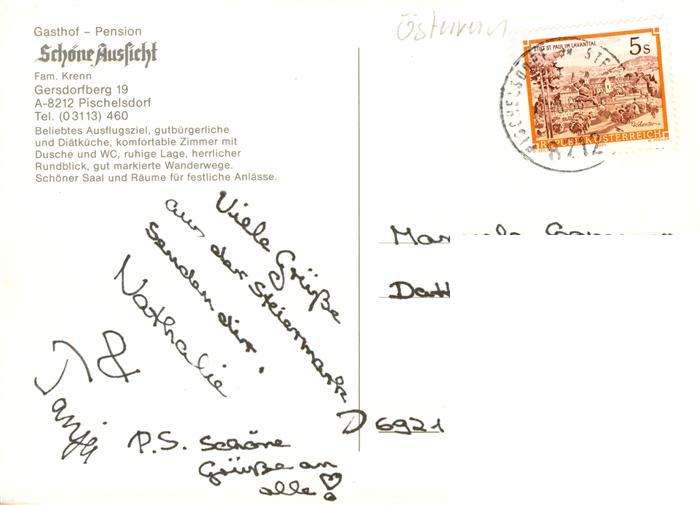 Gasthof - Pension
Schöne Aussicht
Fam. Krenn
Gersdorfberg 19
A-8212 Pischelsdorf
Tel. (03113) 460
Beliebtes Ausflugsziel, gutbürgerliche
und Diätküche, komfortable Zimmer mit
Dusche und WC, ruhige Lage, herrlicher
Rundblick, gut markierte Wanderwege.
Schöner Saal und Räume für festliche Anlässe.
Viele Grüße
aus der Steiermark
senden dir
Nathalie
&
Tanja
P.S. Schöne
Grüße an
alle!
STIFT ST. PAUL IM LAVANTTAL
5s
REPUBLIK ÖSTERREICH
8212
D 6921